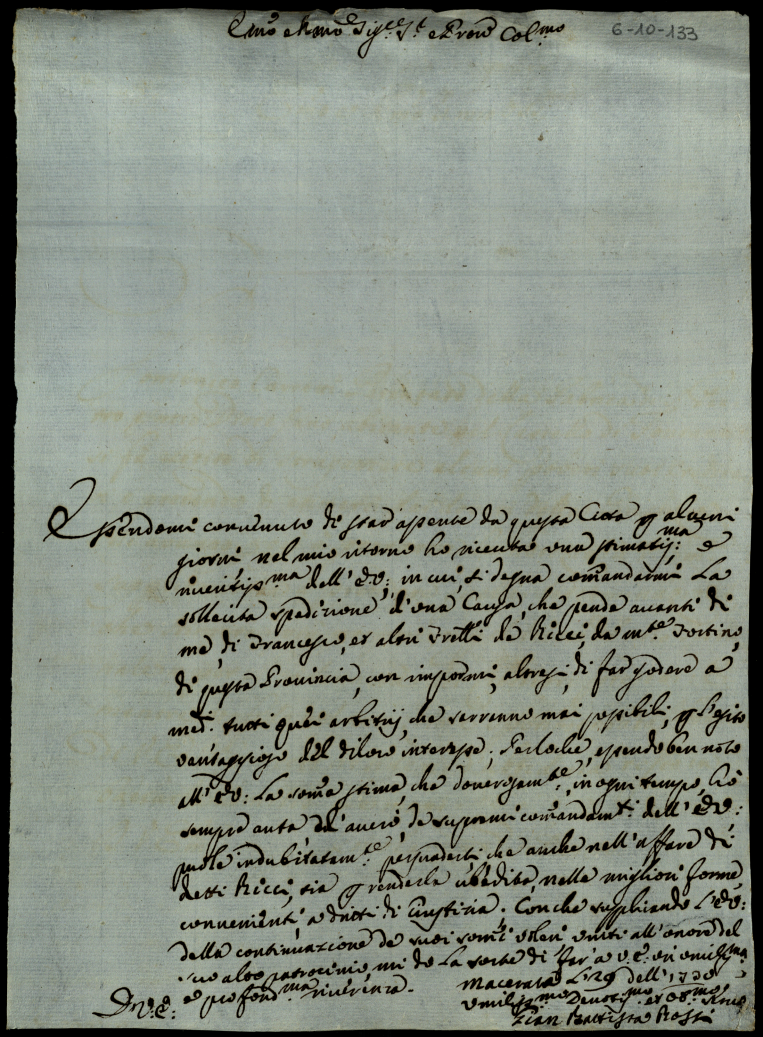 Emõ e Rmõ Sig.re S.r e Prone Col.mo
6-10-133
Essendomi convenuto di star assente da questa Città p alcuni
giorni, nel mio ritorno hò ricevuta una stimatiss:ma e
riveritiss.ma dell' E.V: in cui si degna comandarmi La
sollecita spedizione d'una Causa, che pende avanti di
me, di Francesco, et altri Frelli de Ricci da m.te Fortino
di questa Provincia, con impormi altresi di far godere à
med.i tutti quei arbitrij, che saranno mai possibili p l'esito
vantaggioso del di loro interesse. Perloche, essendo ben noto
all' E.V: La somã stima, che doverosam.te in ogni tempo, hò
sempre auta de' supremi comandam.ti dell' E.V:
puole indubitatam.te persuadersi che anche nell' affare di
detti Ricci, sia p renderla ubbidita nelle migliori forme
convenienti a dritti di Giustizia. Con che supplicando L'E.V:
della continuazione de suoi somĩ voleri uniti all' onore del
suo alto patrocinio mi do La sorte di far a V.E. un' umiliss.ma
e profond.ma riverenza.
Macerata Li 29 dell' 1730
D. V. E:
Umiliss.mo Devotis.mo et Obb.mo Serve
Gian Battista Rossi